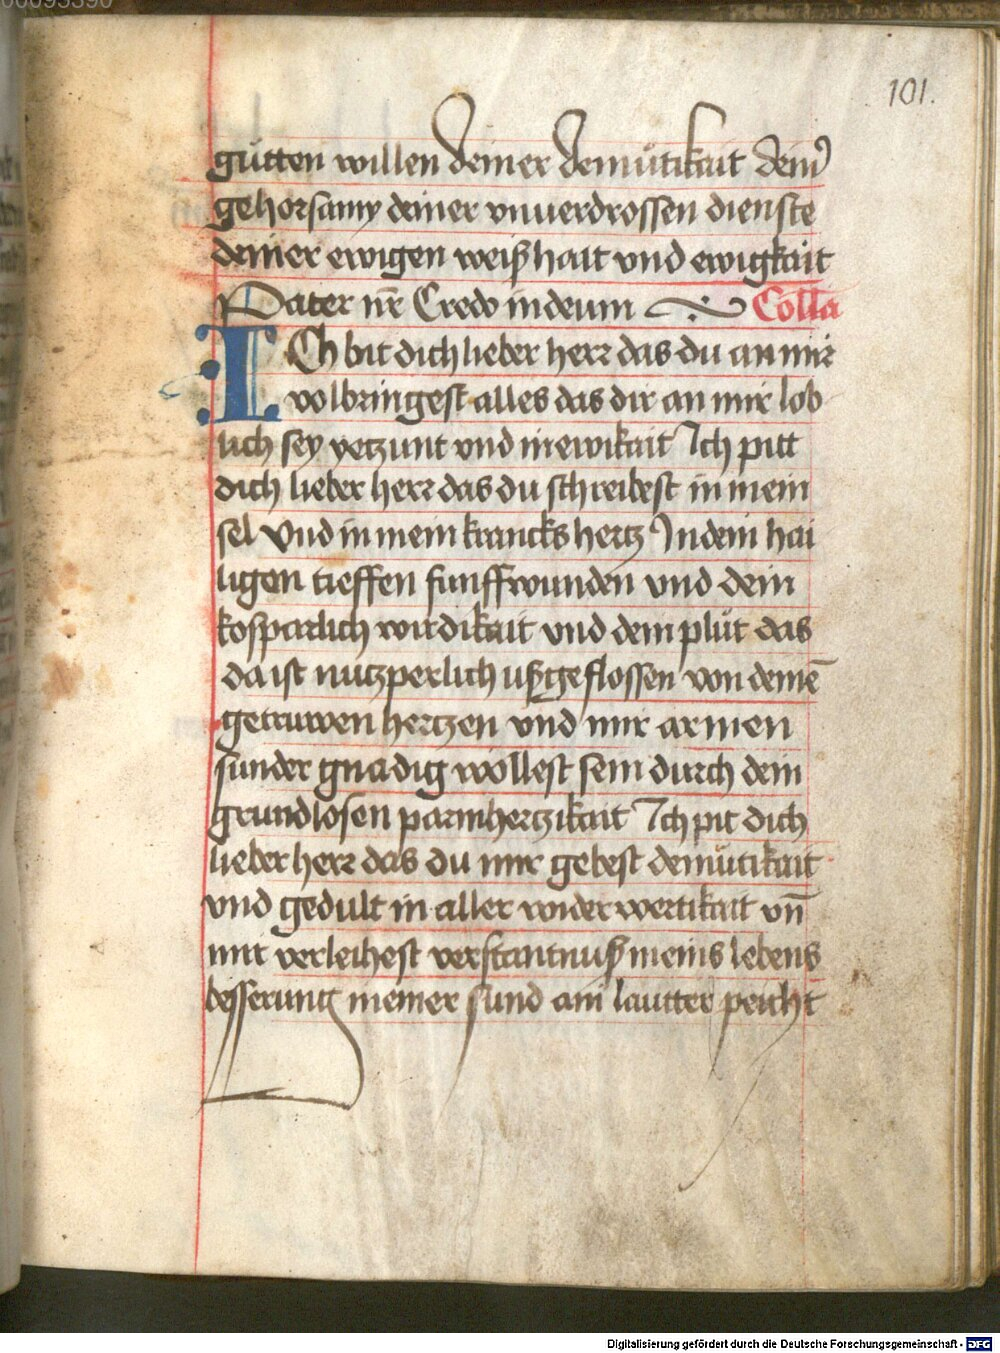 00095390
101.
gůtten willen deiner demůtikait dein᷒
gehorsamy deiner vnuerdrossen dienste
deiner ewigen weißhait vnd ewigkait
Pater nr̄ Credo in deum Colla
ICh bit dich lieber herr das du an mir
volbringest alles das dir an mir lob
lich sey yetzunt vnd in ewikait Ich pitt
dich lieber herr das du schreibest in mein
sel Vnd in mein krancks hertz In dein hai
ligen tieffen funff wunden vnd dein
kosparlich wirdikait vnd dein plůt das
da ist nutzperlich ußgeflossen von deinē
getruwen hertzen vnd mir armen
sunder gnadig wöllest sein durch dein
grundlosen parmhertzikait Ich pit dich
lieber herr das du mir gebest demůtikait
vnd gedult in aller widerwertikait vn̄
mir verleihest verstantnuß meins lebens
besserung meiner sund ain lautter peicht
Digitalisierung gefördert durch die Deutsche Forschungsgemeinschaft - DFG